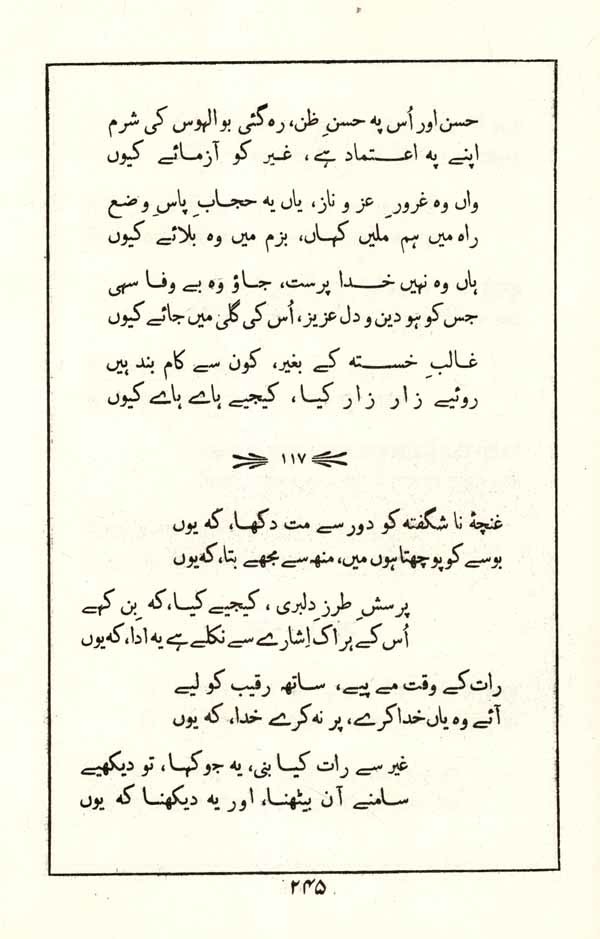 حسن اور اُس پہ حسنِ ظن، رہ گئی بوالہوس کی شرم
اپنے پہ اعتماد ہے، غیر کو آزمائے کیوں
واں وہ غرورِ عز و ناز، یاں یہ حجابِ پاسِ وضع
راہ میں ہم ملیں کہاں، بزم میں وہ بلائے کیوں
ہاں وہ نہیں خدا پرست، جاؤ وہ بے وفا سہی
جس کو ہو دین و دل عزیز، اُس کی گلی میں جائے کیوں
غالبِ خستہ کے بغیر، کون سے کام بند ہیں
روئیے زار زار کیا، کیجیے ہاے ہاے کیوں
۱۱۷
غنچۂ نا شگفتہ کو دور سے مت دکھا، کہ یوں
بوسے کو پوچھتا ہوں میں، منھ سے مجھے بتا، کہ یوں
پرسشِ طرزِ دلبری، کیجیے کیا، کہ بِن کہے
اُس کے ہر اک اِشارے سے نکلے ہے یہ ادا، کہ یوں
رات کے وقت مے پیے، ساتھ رقیب کو لیے
آئے وہ یاں خدا کرے، پر نہ کرے خدا، کہ یوں
غیر سے رات کیا بنی، یہ جو کہا، تو دیکھیے
سامنے آن بیٹھنا، اور یہ دیکھنا کہ یوں
۲۴۵